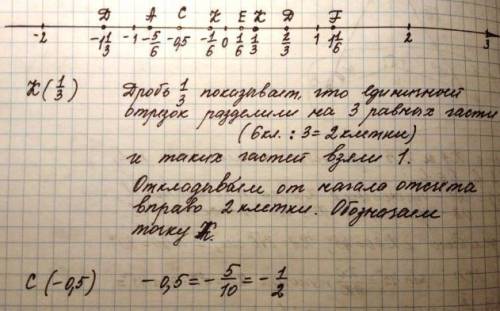 D A C K E K D F
-2 -1 1/3 -1 -5/6 -0,5 -1/6 0 1/6 1/3 2/3 1 1 1/6 2 3
K (1/3) Дробь 1/3 показывает, что единичный
отрезок разделили на 3 равных части
(6кл. : 3 = 2 клетки)
и таких частей взяли 1.
Откладываем от начала отсчета
вправо 2 клетки. Обозначаем
точку K.
C (-0,5) -0,5 = -5/10 = -1/2